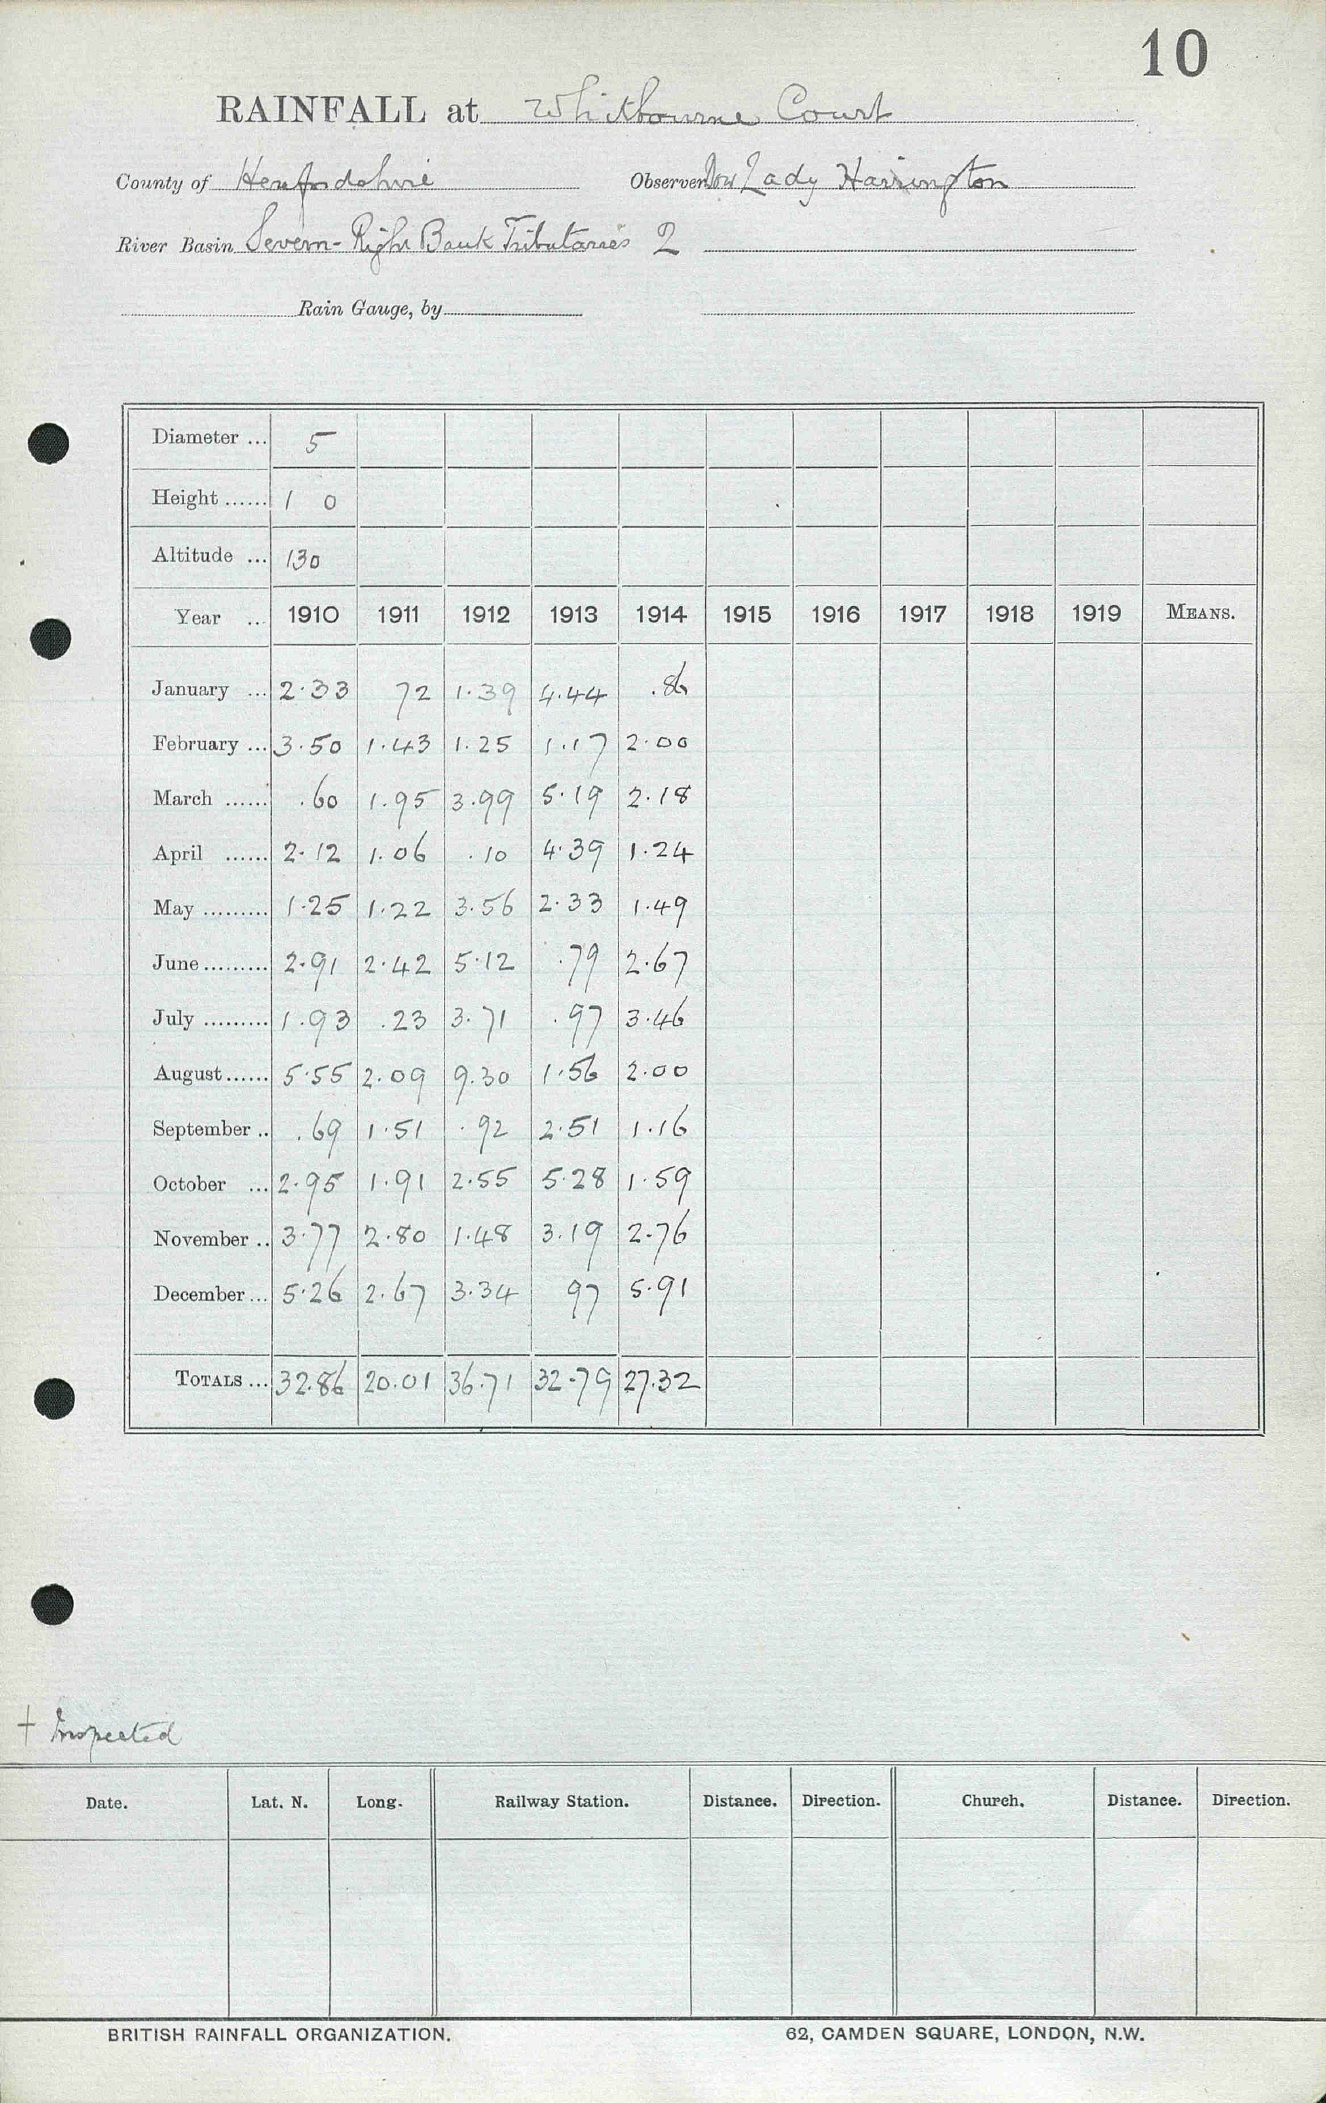 10
RAINFALL at Whitbourne Court
County of Herefordshire Observer Dow Lady Harrington
River Basin Severn - Right Bank Tributaries 2
Rain Gauge, by
Diameter ... 5
Height ...... 1 0
Altitude ... 130
Year ... 1910 1911 1912 1913 1914 1915 1916 1917 1918 1919 MEANS.
January ... 2.33 72 1.39 4.44 .86
February ... 3.50 1.43 1.25 1.17 2.00
March ...... .60 1.95 3.99 5.19 2.18
April ...... 2.12 1.06 .10 4.39 1.24
May ......... 1.25 1.22 3.56 2.33 1.49
June ......... 2.91 2.42 5.12 .79 2.67
July ......... 1.93 .23 3.71 .97 3.46
August ...... 5.55 2.09 9.30 1.56 2.00
September .. .69 1.51 .92 2.51 1.16
October ... 2.95 1.91 2.55 5.28 1.59
November .. 3.77 2.80 1.48 3.19 2.76
December ... 5.26 2.67 3.34 97 5.91
TOTALS ... 32.86 20.01 36.71 32.79 27.32
+ Inspected
Date. Lat. N. Long. Railway Station. Distance. Direction. Church. Distance. Direction.
BRITISH RAINFALL ORGANIZATION. 62, CAMDEN SQUARE, LONDON, N.W.